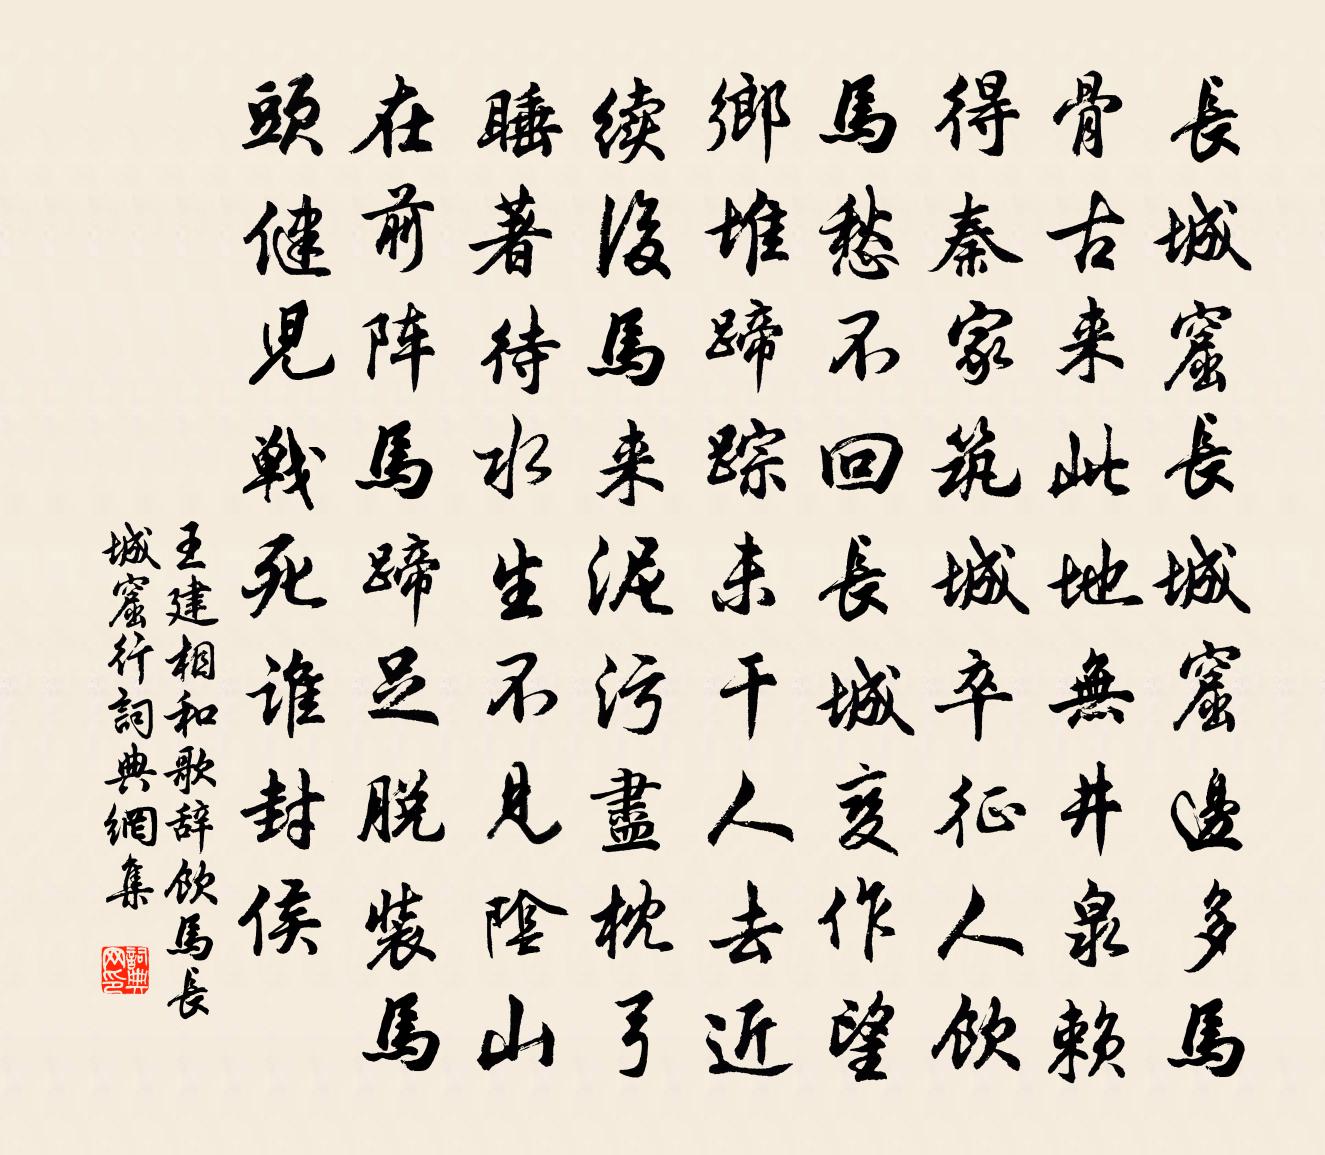 長城窟長城窟邊多馬
骨古来此地無井泉賴
得秦家筑城卒征人飲
馬愁不回長城变作望
鄉堆蹄踪未干人去近
续後馬来泥污盡枕弓
睡著待水生不見陰山
在前阵馬蹄足脱裝馬
頭健児戦死谁封侯
王建相和歌辞飲馬長
城窟行詞典網集
詞典网印